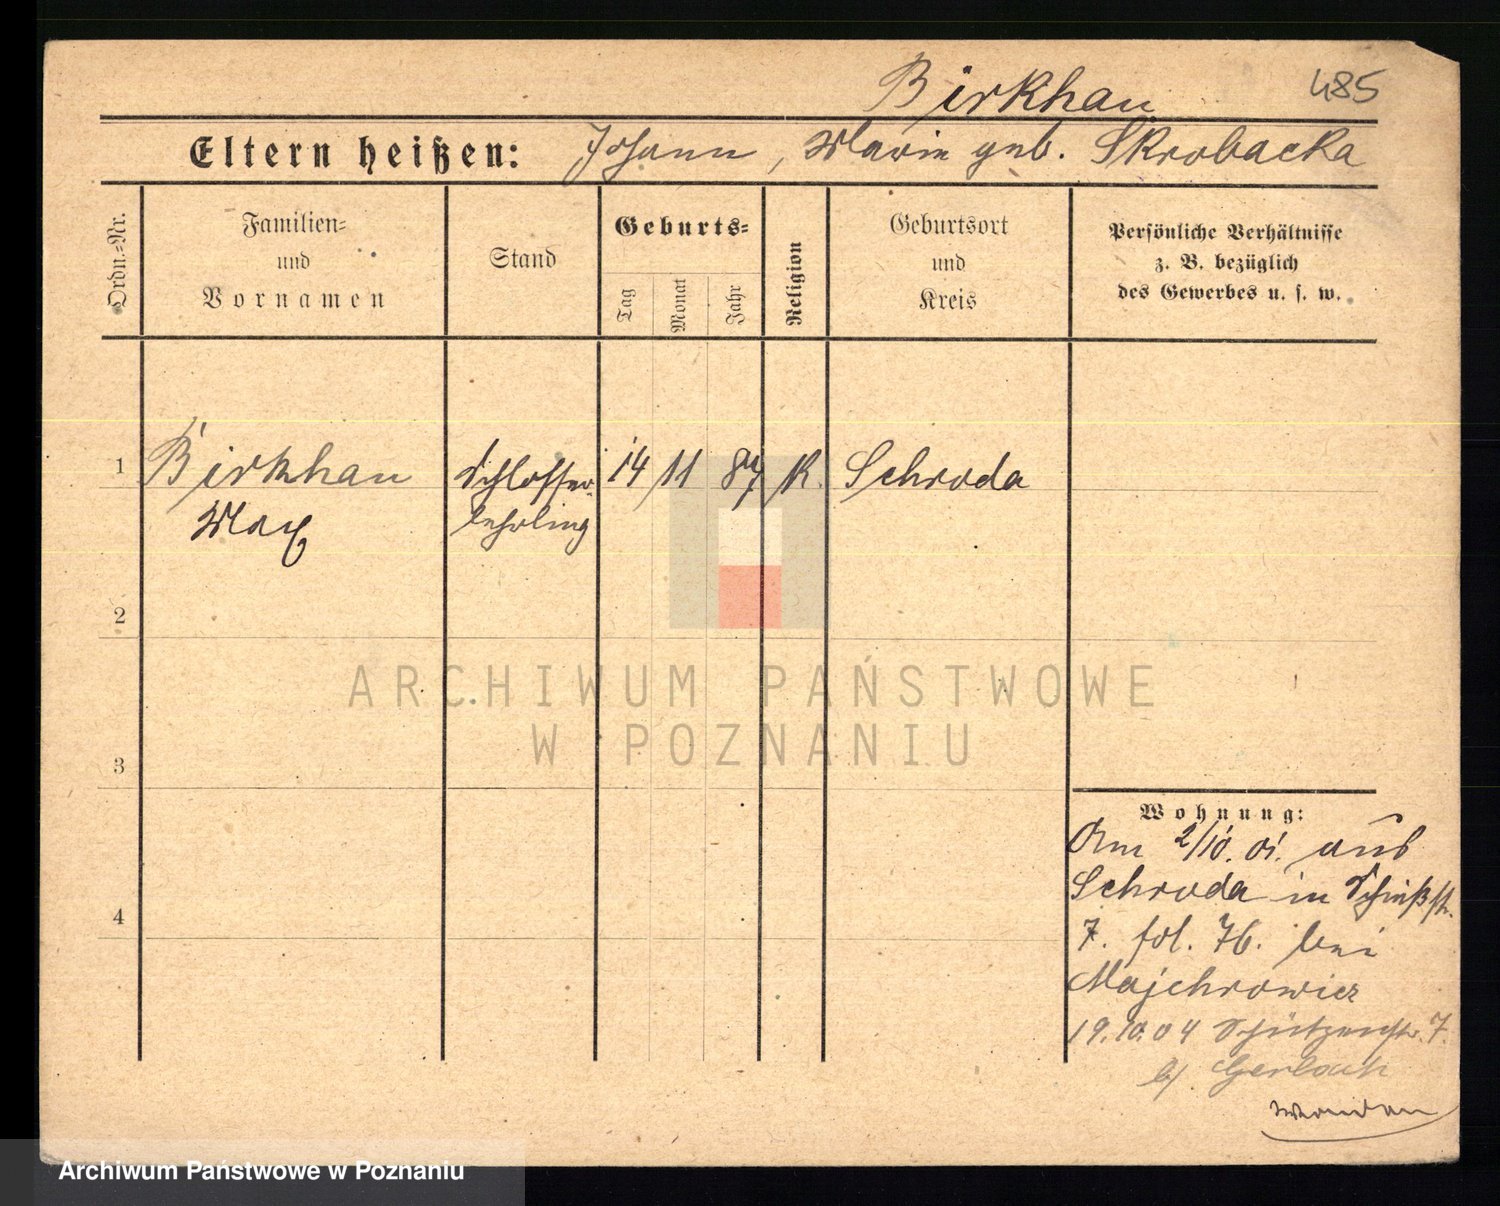 Birkhan 485
Eltern heißen: Johann, Marie geb. Skrobacka
Ordn.=Nr.
Familien=
und
Vornamen
Stand
Geburts=
Tag
Monat
Jahr
Religion
Geburtsort
und
Kreis
Persönliche Verhältnisse
z. B. bezüglich
des Gewerbes u. s. w.
1 Birkhan Schlosser- 14 11 87 K. Schroda
Max lehrling
2
3
4
Wohnung:
Am 2/10. 01. aus
Schroda in
7. fol. 76. bei
Majchrowicz
19.10.04 Schützenstr. 7.
b/ Gerlach
ARCHIWUM PAŃSTWOWE
W POZNANIU
Archiwum Państwowe w Poznaniu